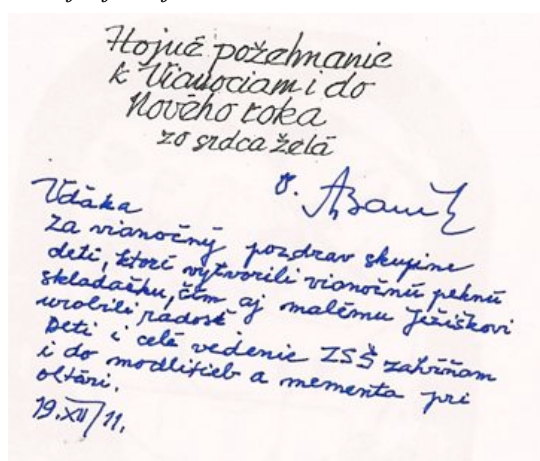 Hojné požehnanie
k Vianociam i do
Nového roka
zo srdca želá
Vďaka
za vianočný pozdrav skupine
detí, ktorí vytvorili vianočnú peknú
skladačku, čím aj malému Ježiškovi
urobili radosť.
Deti i celé vedenie ZSŠ zahŕňam
i do modlitieb a mementa pri
oltári.
19.XII/11.